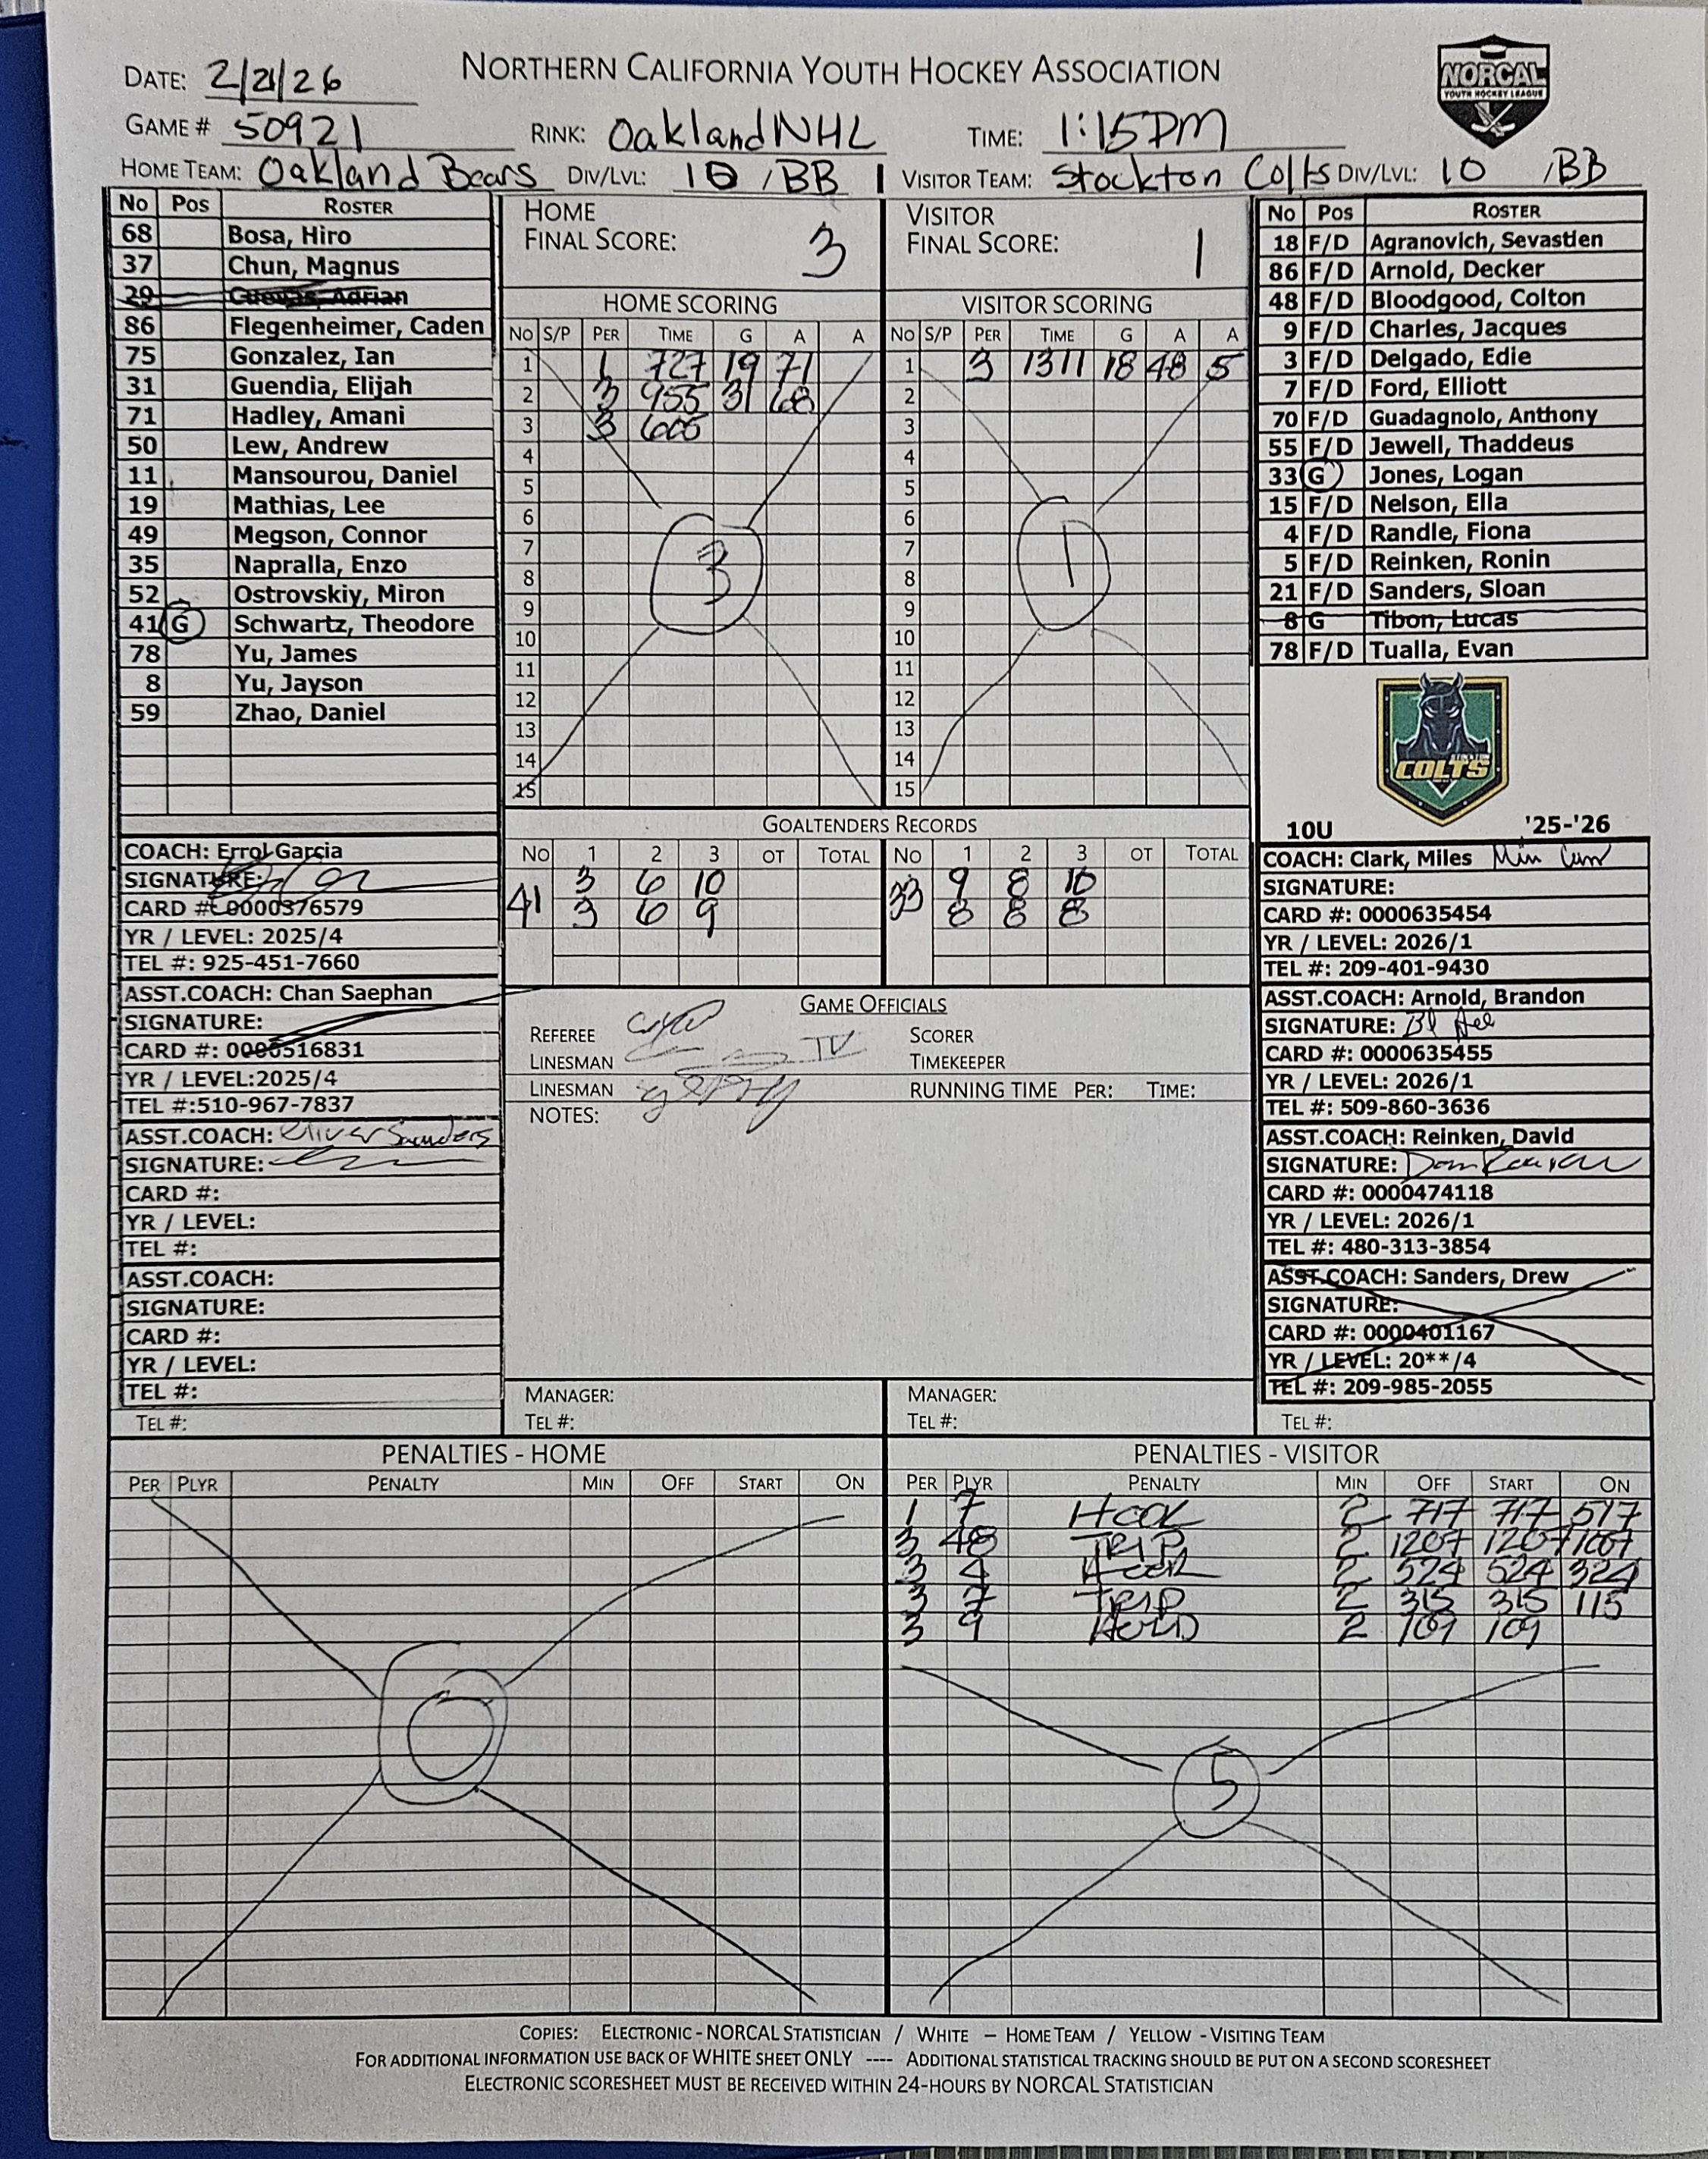 NORTHERN CALIFORNIA YOUTH HOCKEY ASSOCIATION
NORCAL
YOUTH HOCKEY LEAGUE
DATE: 2/21/26
GAME # 50921 RINK: Oakland NHL TIME: 1:15PM
HOME TEAM: Oakland Bears DIV/LVL: 10 /BB VISITOR TEAM: Stockton Colts DIV/LVL: 10 /BB
No Pos ROSTER
68 Bosa, Hiro
37 Chun, Magnus
29 Cuevas, Adrian
86 Flegenheimer, Caden
75 Gonzalez, Ian
31 Guendia, Elijah
71 Hadley, Amani
50 Lew, Andrew
11 Mansourou, Daniel
19 Mathias, Lee
49 Megson, Connor
35 Napralla, Enzo
52 Ostrovskiy, Miron
41 G Schwartz, Theodore
78 Yu, James
8 Yu, Jayson
59 Zhao, Daniel
COACH: Errol Garcia
SIGNATURE:
CARD #: 0000376579
YR / LEVEL: 2025/4
TEL #: 925-451-7660
ASST.COACH: Chan Saephan
SIGNATURE:
CARD #: 0000516831
YR / LEVEL:2025/4
TEL #:510-967-7837
ASST.COACH: Oliver Saunders
SIGNATURE:
CARD #:
YR / LEVEL:
TEL #:
ASST.COACH:
SIGNATURE:
CARD #:
YR / LEVEL:
TEL #:
TEL #:
HOME
FINAL SCORE: 3
VISITOR
FINAL SCORE: 1
HOME SCORING
No S/P PER TIME G A A
1 1 727 19 71
2 3 955 31 68
3 3 606
4
5
6
7
8
9
10
11
12
13
14
15
3
VISITOR SCORING
No S/P PER TIME G A A
1 3 1311 18 48 5
2
3
4
5
6
7
8
9
10
11
12
13
14
15
1
GOALTENDERS RECORDS
No 1 2 3 OT TOTAL No 1 2 3 OT TOTAL
3 6 10 9 8 10
41 3 6 9 33 8 8 8
GAME OFFICIALS
REFEREE SCORER
LINESMAN TIMEKEEPER
LINESMAN RUNNING TIME PER: TIME:
NOTES:
MANAGER: MANAGER:
TEL #: TEL #:
No Pos ROSTER
18 F/D Agranovich, Sevastien
86 F/D Arnold, Decker
48 F/D Bloodgood, Colton
9 F/D Charles, Jacques
3 F/D Delgado, Edie
7 F/D Ford, Elliott
70 F/D Guadagnolo, Anthony
55 F/D Jewell, Thaddeus
33 G Jones, Logan
15 F/D Nelson, Ella
4 F/D Randle, Fiona
5 F/D Reinken, Ronin
21 F/D Sanders, Sloan
8 G Tibon, Lucas
78 F/D Tualla, Evan
COLTS
10U '25-'26
COACH: Clark, Miles
SIGNATURE:
CARD #: 0000635454
YR / LEVEL: 2026/1
TEL #: 209-401-9430
ASST.COACH: Arnold, Brandon
SIGNATURE:
CARD #: 0000635455
YR / LEVEL: 2026/1
TEL #: 509-860-3636
ASST.COACH: Reinken, David
SIGNATURE:
CARD #: 0000474118
YR / LEVEL: 2026/1
TEL #: 480-313-3854
ASST.COACH: Sanders, Drew
SIGNATURE:
CARD #: 0000401167
YR / LEVEL: 20**/4
TEL #: 209-985-2055
TEL #:
PENALTIES - HOME
PER PLYR PENALTY MIN OFF START ON
0
PENALTIES - VISITOR
PER PLYR PENALTY MIN OFF START ON
1 7 HOOK 2 717 717 517
3 48 TRIP 2 1207 1207 1007
3 4 HOOK 2 524 524 324
3 7 TRIP 2 315 315 115
3 9 HOLD 2 109 109
5
COPIES: ELECTRONIC - NORCAL STATISTICIAN / WHITE – HOME TEAM / YELLOW - VISITING TEAM
FOR ADDITIONAL INFORMATION USE BACK OF WHITE SHEET ONLY ---- ADDITIONAL STATISTICAL TRACKING SHOULD BE PUT ON A SECOND SCORESHEET
ELECTRONIC SCORESHEET MUST BE RECEIVED WITHIN 24-HOURS BY NORCAL STATISTICIAN